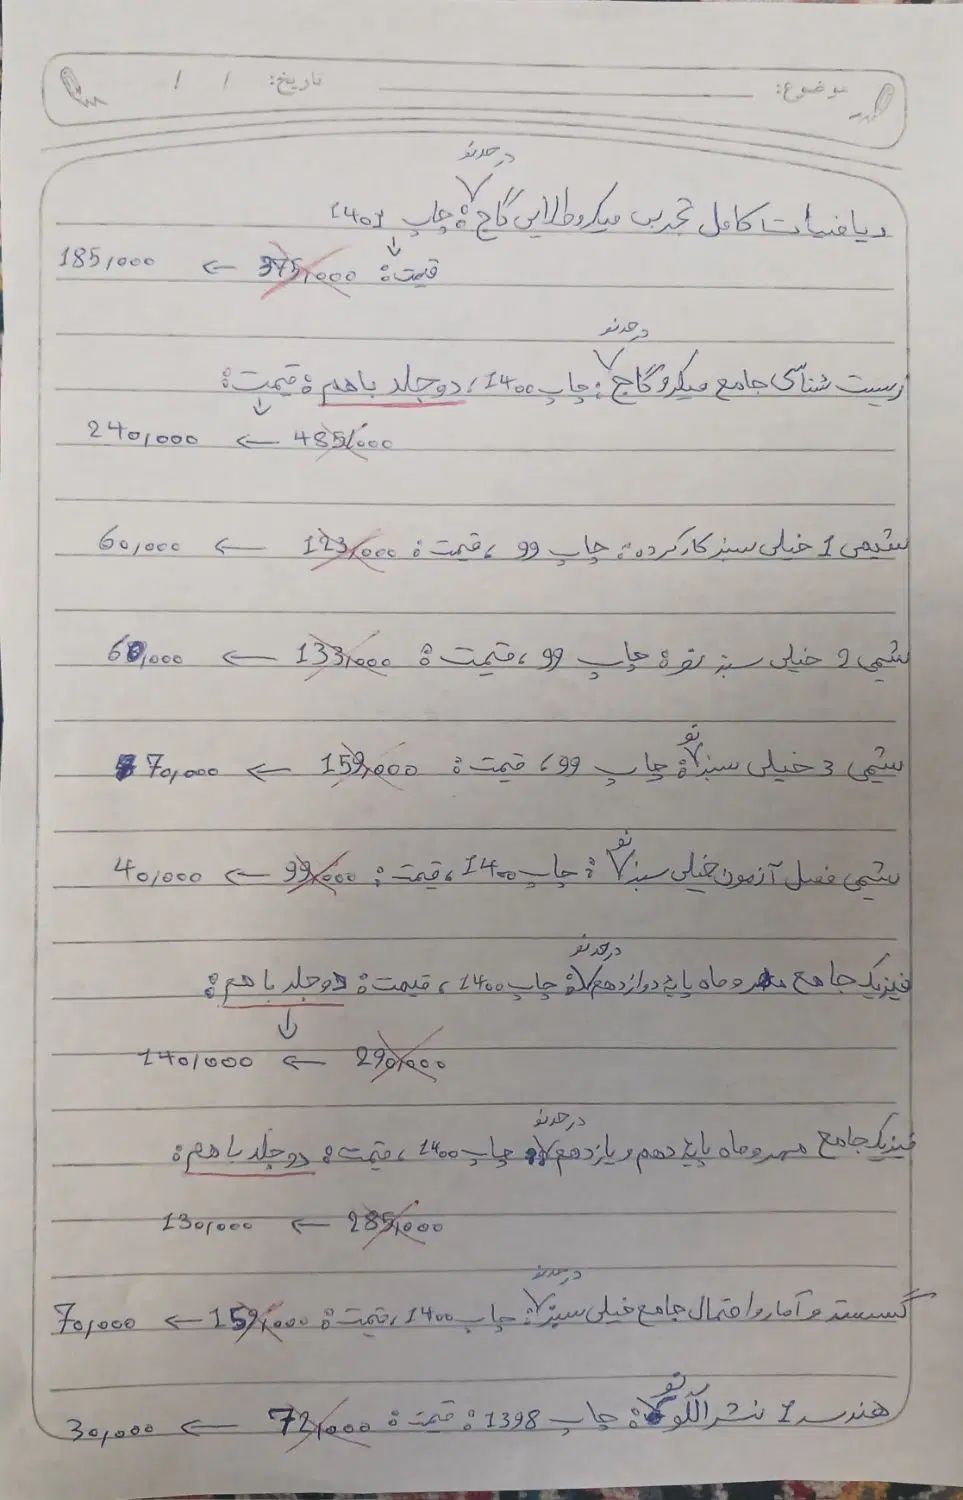 موضوع: تاریخ: / /
در حد نو
ریاضیات کامل تجربی میکرو طلایی گاج: چاپ 1401
قیمت: 375,000 ← 185,000
در حد نو
زیست شناسی جامع میکرو گاج: چاپ 1400، دو جلد با هم: قیمت:
485,000 ← 240,000
شیمی 1 خیلی سبز کارکرده: چاپ 99، قیمت: 123,000 ← 60,000
شیمی 2 خیلی سبز نو: چاپ 99، قیمت: 133,000 ← 60,000
نو
شیمی 3 خیلی سبز: چاپ 99، قیمت: 159,000 ← 70,000
نو
شیمی فصل آزمون خیلی سبز: چاپ 1400، قیمت: 99,000 ← 40,000
در حد نو
فیزیک جامع مهر و ماه پایه دوازدهم: چاپ 1400، قیمت: دو جلد با هم:
290,000 ← 140,000
در حد نو
فیزیک جامع مهر و ماه پایه دهم و یازدهم: چاپ 1400، قیمت: دو جلد با هم:
285,000 ← 130,000
در حد نو
گسسته و آمار و احتمال جامع خیلی سبز: چاپ 1400، قیمت: 159,000 ← 70,000
نو
هندسه 1 نشر الگو: چاپ 1398: قیمت: 72,000 ← 30,000